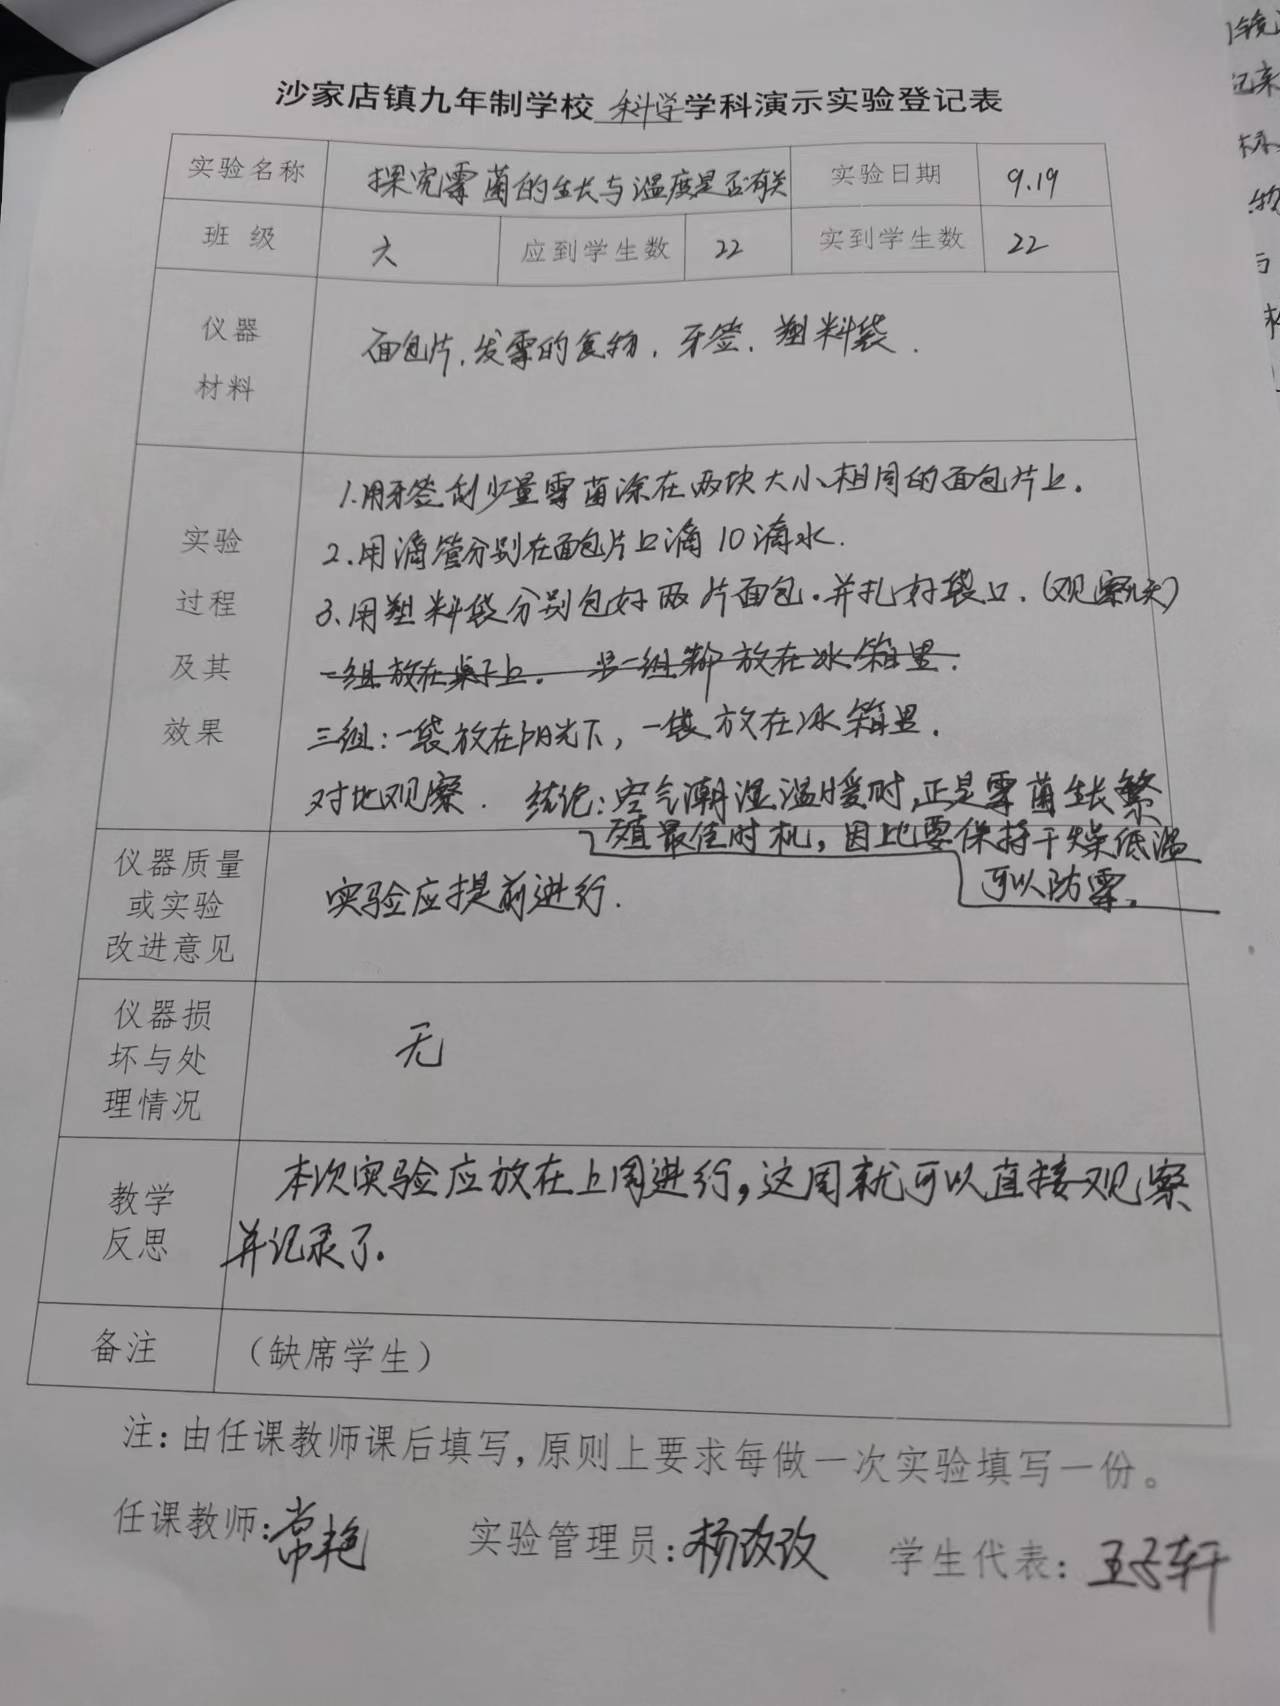 沙家店镇九年制学校 科学 学科演示实验登记表
实验名称 探究霉菌的生长与温度是否有关 实验日期 9.19
班 级 六 应到学生数 22 实到学生数 22
仪器
材料
面包片,发霉的食物,牙签,塑料袋.
实验
过程
及其
效果
1.用牙签刮少量霉菌涂在两块大小相同的面包片上.
2.用滴管分别在面包片上滴10滴水.
3.用塑料袋分别包好两片面包.并扎好袋口.(观察几天)
一组放在桌子上. 另一组 放在冰箱里.
三组:一袋放在阳光下,一袋放在冰箱里.
对比观察. 结论:空气潮湿温暖时,正是霉菌生长繁
殖最佳时机,因此要保持干燥低温
可以防霉.
仪器质量
或实验
改进意见
实验应提前进行.
仪器损
坏与处
理情况
无
教学
反思
本次实验应放在上周进行,这周就可以直接观察
并记录了.
备注 (缺席学生)
注:由任课教师课后填写,原则上要求每做一次实验填写一份。
任课教师:常艳 实验管理员:杨改改 学生代表:王子轩
记录